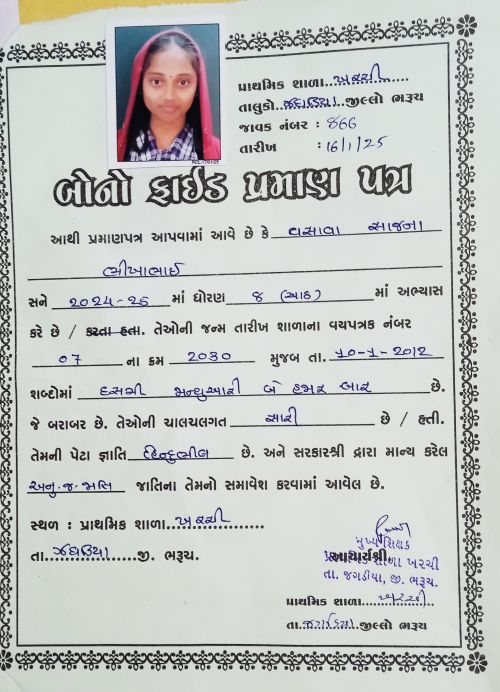 પ્રાથમિક શાળા..ખરચી......
તાલુકો..ઝઘડિયા..જીલ્લો ભરૂચ
જાવક નંબર : 866
તારીખ : 16/1/25
બોનો ફાઈડ પ્રમાણ પત્ર
આથી પ્રમાણપત્ર આપવામાં આવે છે કે વસાવા સાજના
ભીખાભાઈ
સને 2024-25 માં ધોરણ 8 (આઠ) માં અભ્યાસ
કરે છે / કરતા હતા. તેઓની જન્મ તારીખ શાળાના વયપત્રક નંબર
07 ના ક્રમ 2030 મુજબ તા. 10-1-2012
શબ્દોમાં દસમી જાન્યુઆરી બે હજાર બાર છે.
જે બરાબર છે. તેઓની ચાલચલગત સારી છે / હતી.
તેમની પેટા જ્ઞાતિ હિન્દુભીલ છે. અને સરકારશ્રી દ્રારા માન્ય કરેલ
અનુ.જ.જાતિ જાતિના તેમનો સમાવેશ કરવામાં આવેલ છે.
સ્થળ : પ્રાથમિક શાળા..ખરચી..................
તા..ઝઘડિયા......જી. ભરૂચ.
મુખ્ય શિક્ષક
આચાર્યશ્રી
પ્રાથમિક શાળા ખરચી
તા. જગડીયા, જી. ભરૂચ.
પ્રાથમિક શાળા.....ખરચી..
તા..ઝઘડિયા..જીલ્લો ભરૂચ